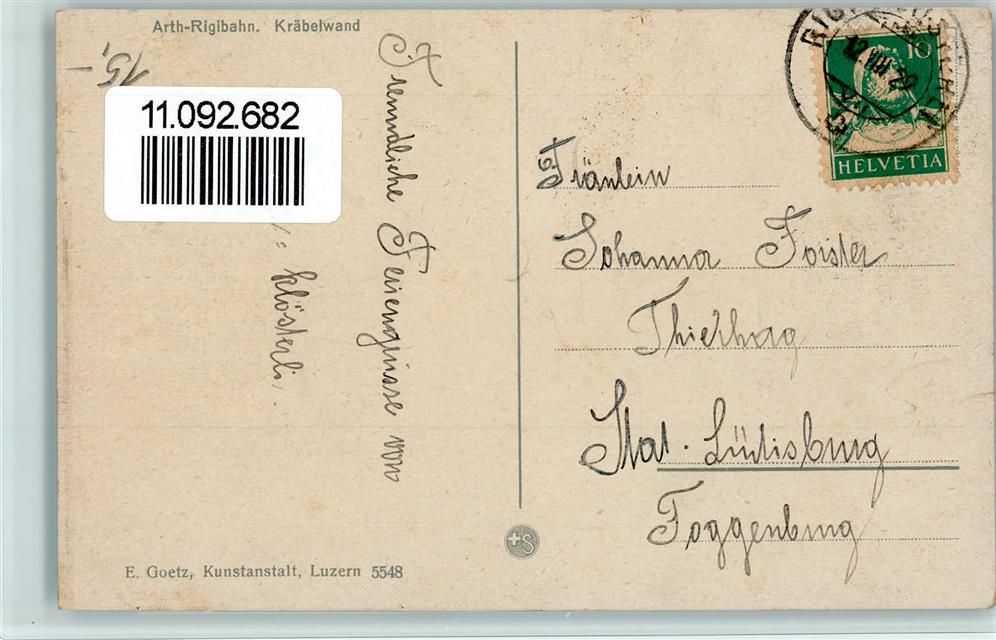 Arth-Rigibahn. Kräbelwand
15,-
11.092.682
Freundliche Feriengrüsse von
Klösterli.
10
HELVETIA
Fräulein
Johanna Forster
Thierhag
Stat. Lütisburg
Toggenburg
E. Goetz, Kunstanstalt, Luzern 5548